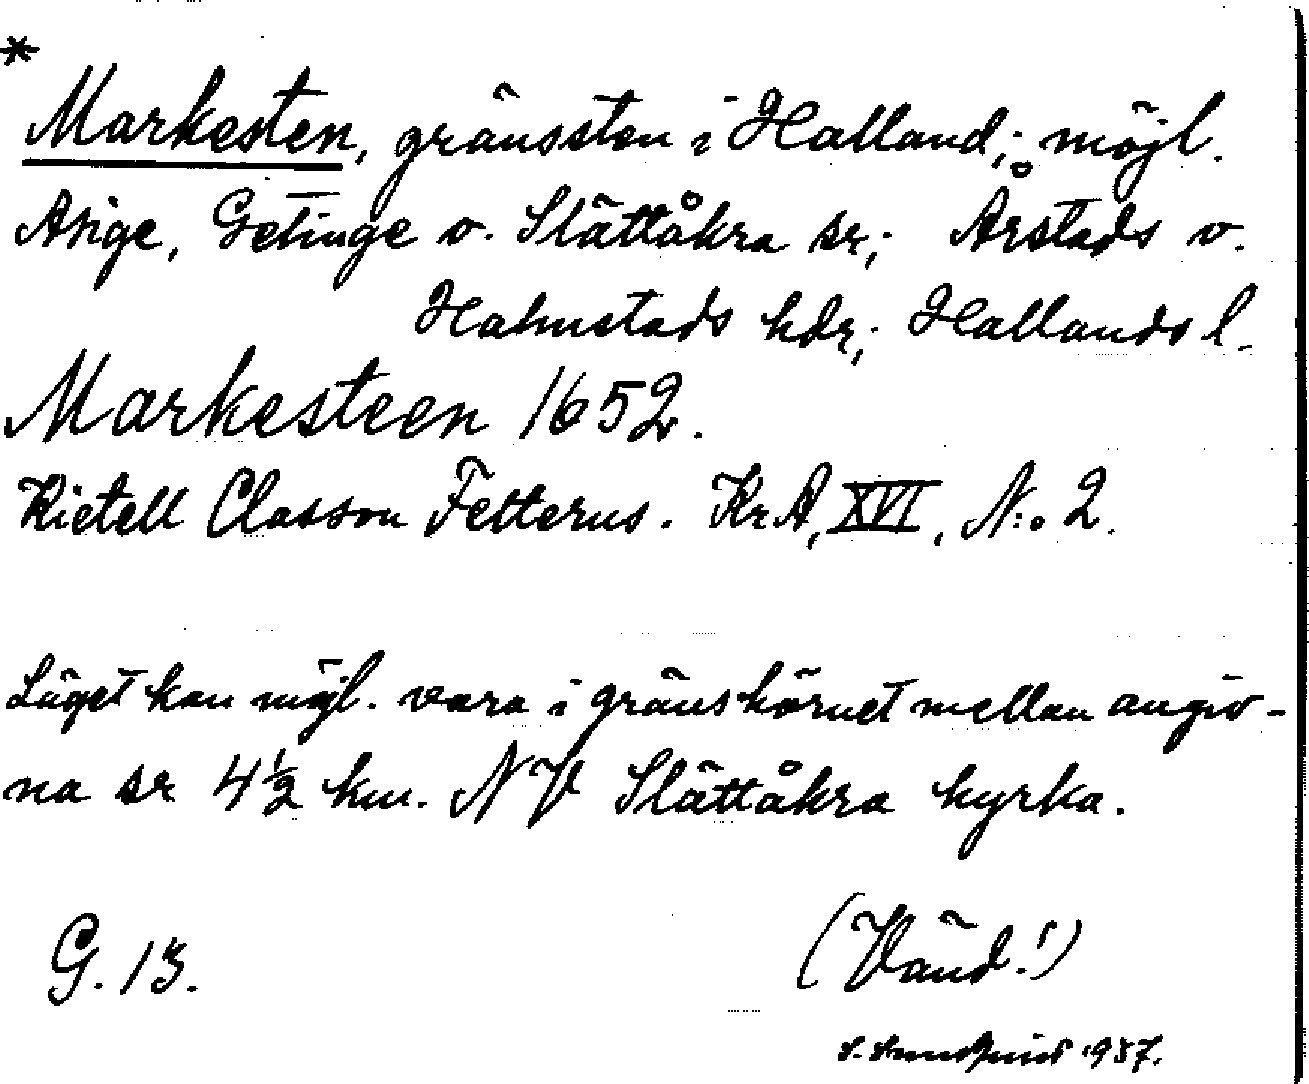 *
Markesten, gränssten i Halland; möjl.
Asige, Getinge o. Slättåkra sr; Årstads o.
Halmstads hdr; Hallands l.
Markesteen 1652.
Kietell Classon Felterus. KrA, XVI, N:o 2.
Läget kan möjl. vara i gränshörnet mellan angiv-
na sr 4½ km. NV Slättåkra kyrka.
G. 13.
(Vänd!)
1937.